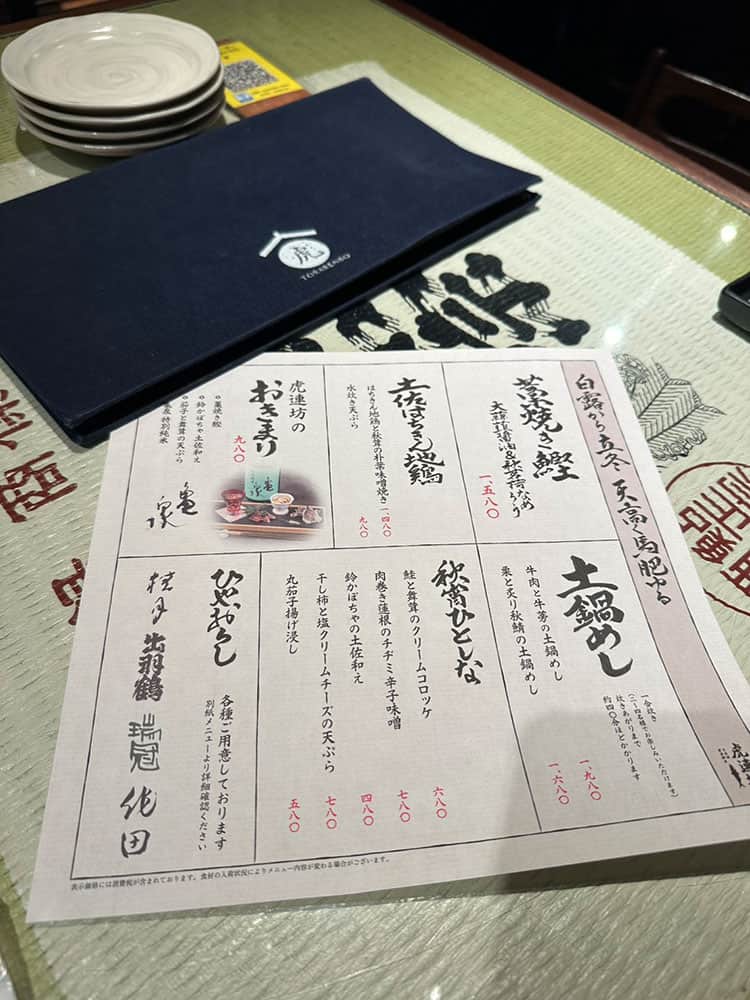 白露から立冬 天高く馬肥ゆる
藁焼き鰹
一、五八〇
土佐はちきん地鶏
はちきん地鶏と秋茸の朴葉味噌焼き 一、四八〇
水炊き天ぷら 九八〇
虎連坊の
おきまり
九八〇
藁焼き鰹
鈴かぼちゃ土佐和え
茄子と舞茸の天ぷら
特別純米
亀泉
土鍋めし
牛肉と牛蒡の土鍋めし 一、九八〇
栗と炙り秋鯖の土鍋めし 一、六八〇
一合炊き
(二〜四名様でお楽しみいただけます)
炊きあがりまで
約四〇分ほどかかります
秋宵ひとしな
鮭と舞茸のクリームコロッケ 六八〇
肉巻き蓮根のチヂミ辛子味噌 七八〇
鈴かぼちゃの土佐和え 四八〇
干し柿と塩クリームチーズの天ぷら 七八〇
丸茄子揚げ浸し 五八〇
ひやおろし
各種ご用意しております
別紙メニューより詳細確認ください
桂月
出羽鶴
瑞冠
作田
虎連
表示価格には消費税が含まれております。食材の入荷状況によりメニュー内容が変わる場合がございます。
虎
TORARENBO